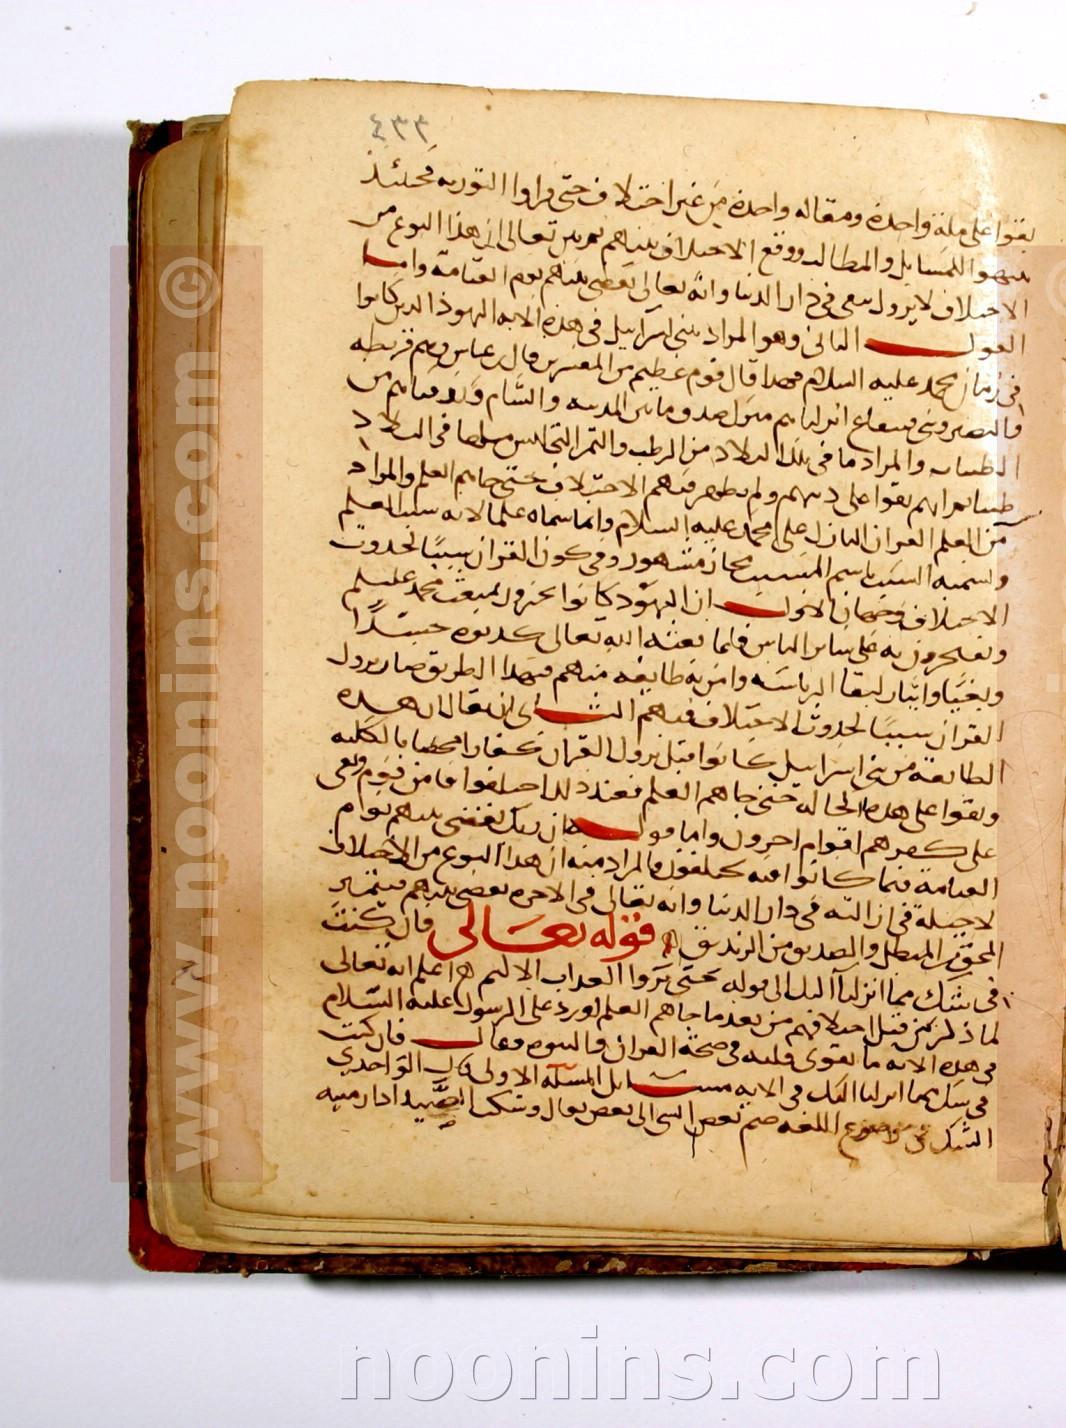 ٤٣٣
بقوا على ملة واحدة ومقاله واحدة من غير اختلاف حتى قراوا التوريه فحينئذ
تنبهوا للمسايل والمطالب ووقع الاختلاف بينهم ثم بين تعالى ان هذا النوع من
الاختلاف لا يزول يبقى في دار الدنيا وانه تعالى يقضي بينهم يوم القيامة واما
القول الثاني وهو المراد ببني اسرايل في هذه الايه اليهود الذين كانوا
في زمان محمد عليه السلام فهذا قال قوم عظيم من المفسرين قال بن عباس وهم قريظه
والنضير وبني قينقاع انزلناهم منزل صدق ما بين المدينه والشام ورزقناهم من
الطيبات والمراد ما في تلك البلاد من الرطب والتمر التي ليس مثلها في البلاد
طيبا ثم انهم بقوا على دينهم ولم يظهر فيهم الاختلاف حتى جاهم العلم والمراد
من العلم القران النازل على محمد عليه السلام وانما سماه علما لانه سبب العلم
وتسميه السبب باسم المسبب مجاز مشهور وفي كون القران سببا لحدوث
الاختلاف وجهان الاول ان اليهود كانوا يخبرون بمبعث محمد عليه السلم
ويفتخرون به على ساير الناس فلما بعثه الله تعالى كذبوه حسدا
وبغيا وايثارا لبقا الرياسه وامن به طايفه منهم فبهذا الطريق صار نزول
القران سببا لحدوث الاختلاف فيهم الثاني ان يقال ان هذه
الطايفة من بني اسرايل كانوا قبل نزول القران كفارا محضا بالكليه
وبقوا على هذه الحاله حتى جاهم العلم فعند ذلك اختلفوا فامن قوم وبقي
على كفرهم اقوام اخرون واما قوله ان ربك يقضي بينهم يوم
القيامة فيما كانوا فيه يختلفون فالمراد منه ان هذا النوع من الاختلاف
لا حيلة في ازالته في دار الدنيا وانه تعالى في الاخره يقضي بينهم فيتميز
المحق من المبطل والصديق من الزنديق قوله تعالى فان كنت
في شك مما انزلنا اليك الى قوله حتى يروا العذاب الاليم اعلم انه تعالى
لما ذكر من قبل اختلافهم من بعد ما جاهم العلم اورد على الرسول عليه السلام
في هذه الايه ما يقوي قلبه في صحة القران والنبوه فقال فان كنت
في شك مما انزلنا اليك في الايه مسايل المسئله الاولى قال الواحدي
الشك في موضوع اللغه ضم بعض الشي الى بعض يقال وشك الصيد اذا رميه